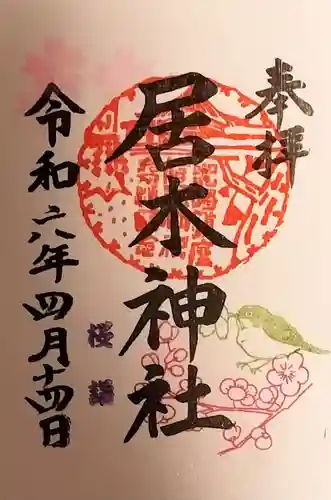 奉拝
居木神社
令和六年四月十四日